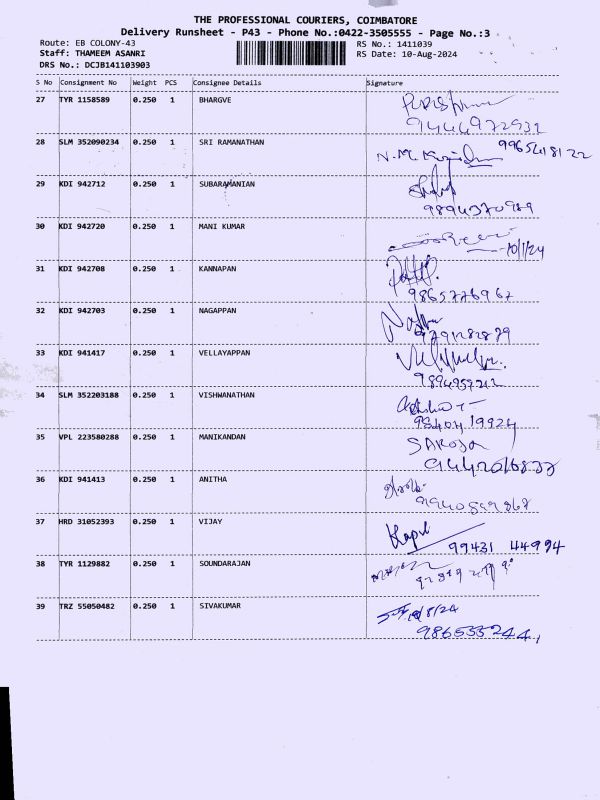 THE PROFESSIONAL COURIERS, COIMBATORE
Delivery Runsheet - P43 - Phone No.:0422-3505555 - Page No.:3
Route: EB COLONY-43 RS No.: 1411039
Staff: THAMEEM ASANRI RS Date: 10-Aug-2024
DRS No.: DCJB141103903
S No Consignment No Weight PCS Consignee Details Signature
27 TYR 1158589 0.250 1 BHARGVE
9444972932
28 SLM 352090234 0.250 1 SRI RAMANATHAN
29 KDI 942712 0.250 1 SUBARAMANIAN
9894370989
30 KDI 942720 0.250 1 MANI KUMAR
31 KDI 942708 0.250 1 KANNAPAN
9865776967
32 KDI 942703 0.250 1 NAGAPPAN
33 KDI 941417 0.250 1 VELLAYAPPAN
34 SLM 352203188 0.250 1 VISHWANATHAN
35 VPL 223580288 0.250 1 MANIKANDAN SAROJA
36 KDI 941413 0.250 1 ANITHA
37 HRD 31052393 0.250 1 VIJAY
99431 44994
38 TYR 1129882 0.250 1 SOUNDARAJAN
39 TRZ 55050482 0.250 1 SIVAKUMAR